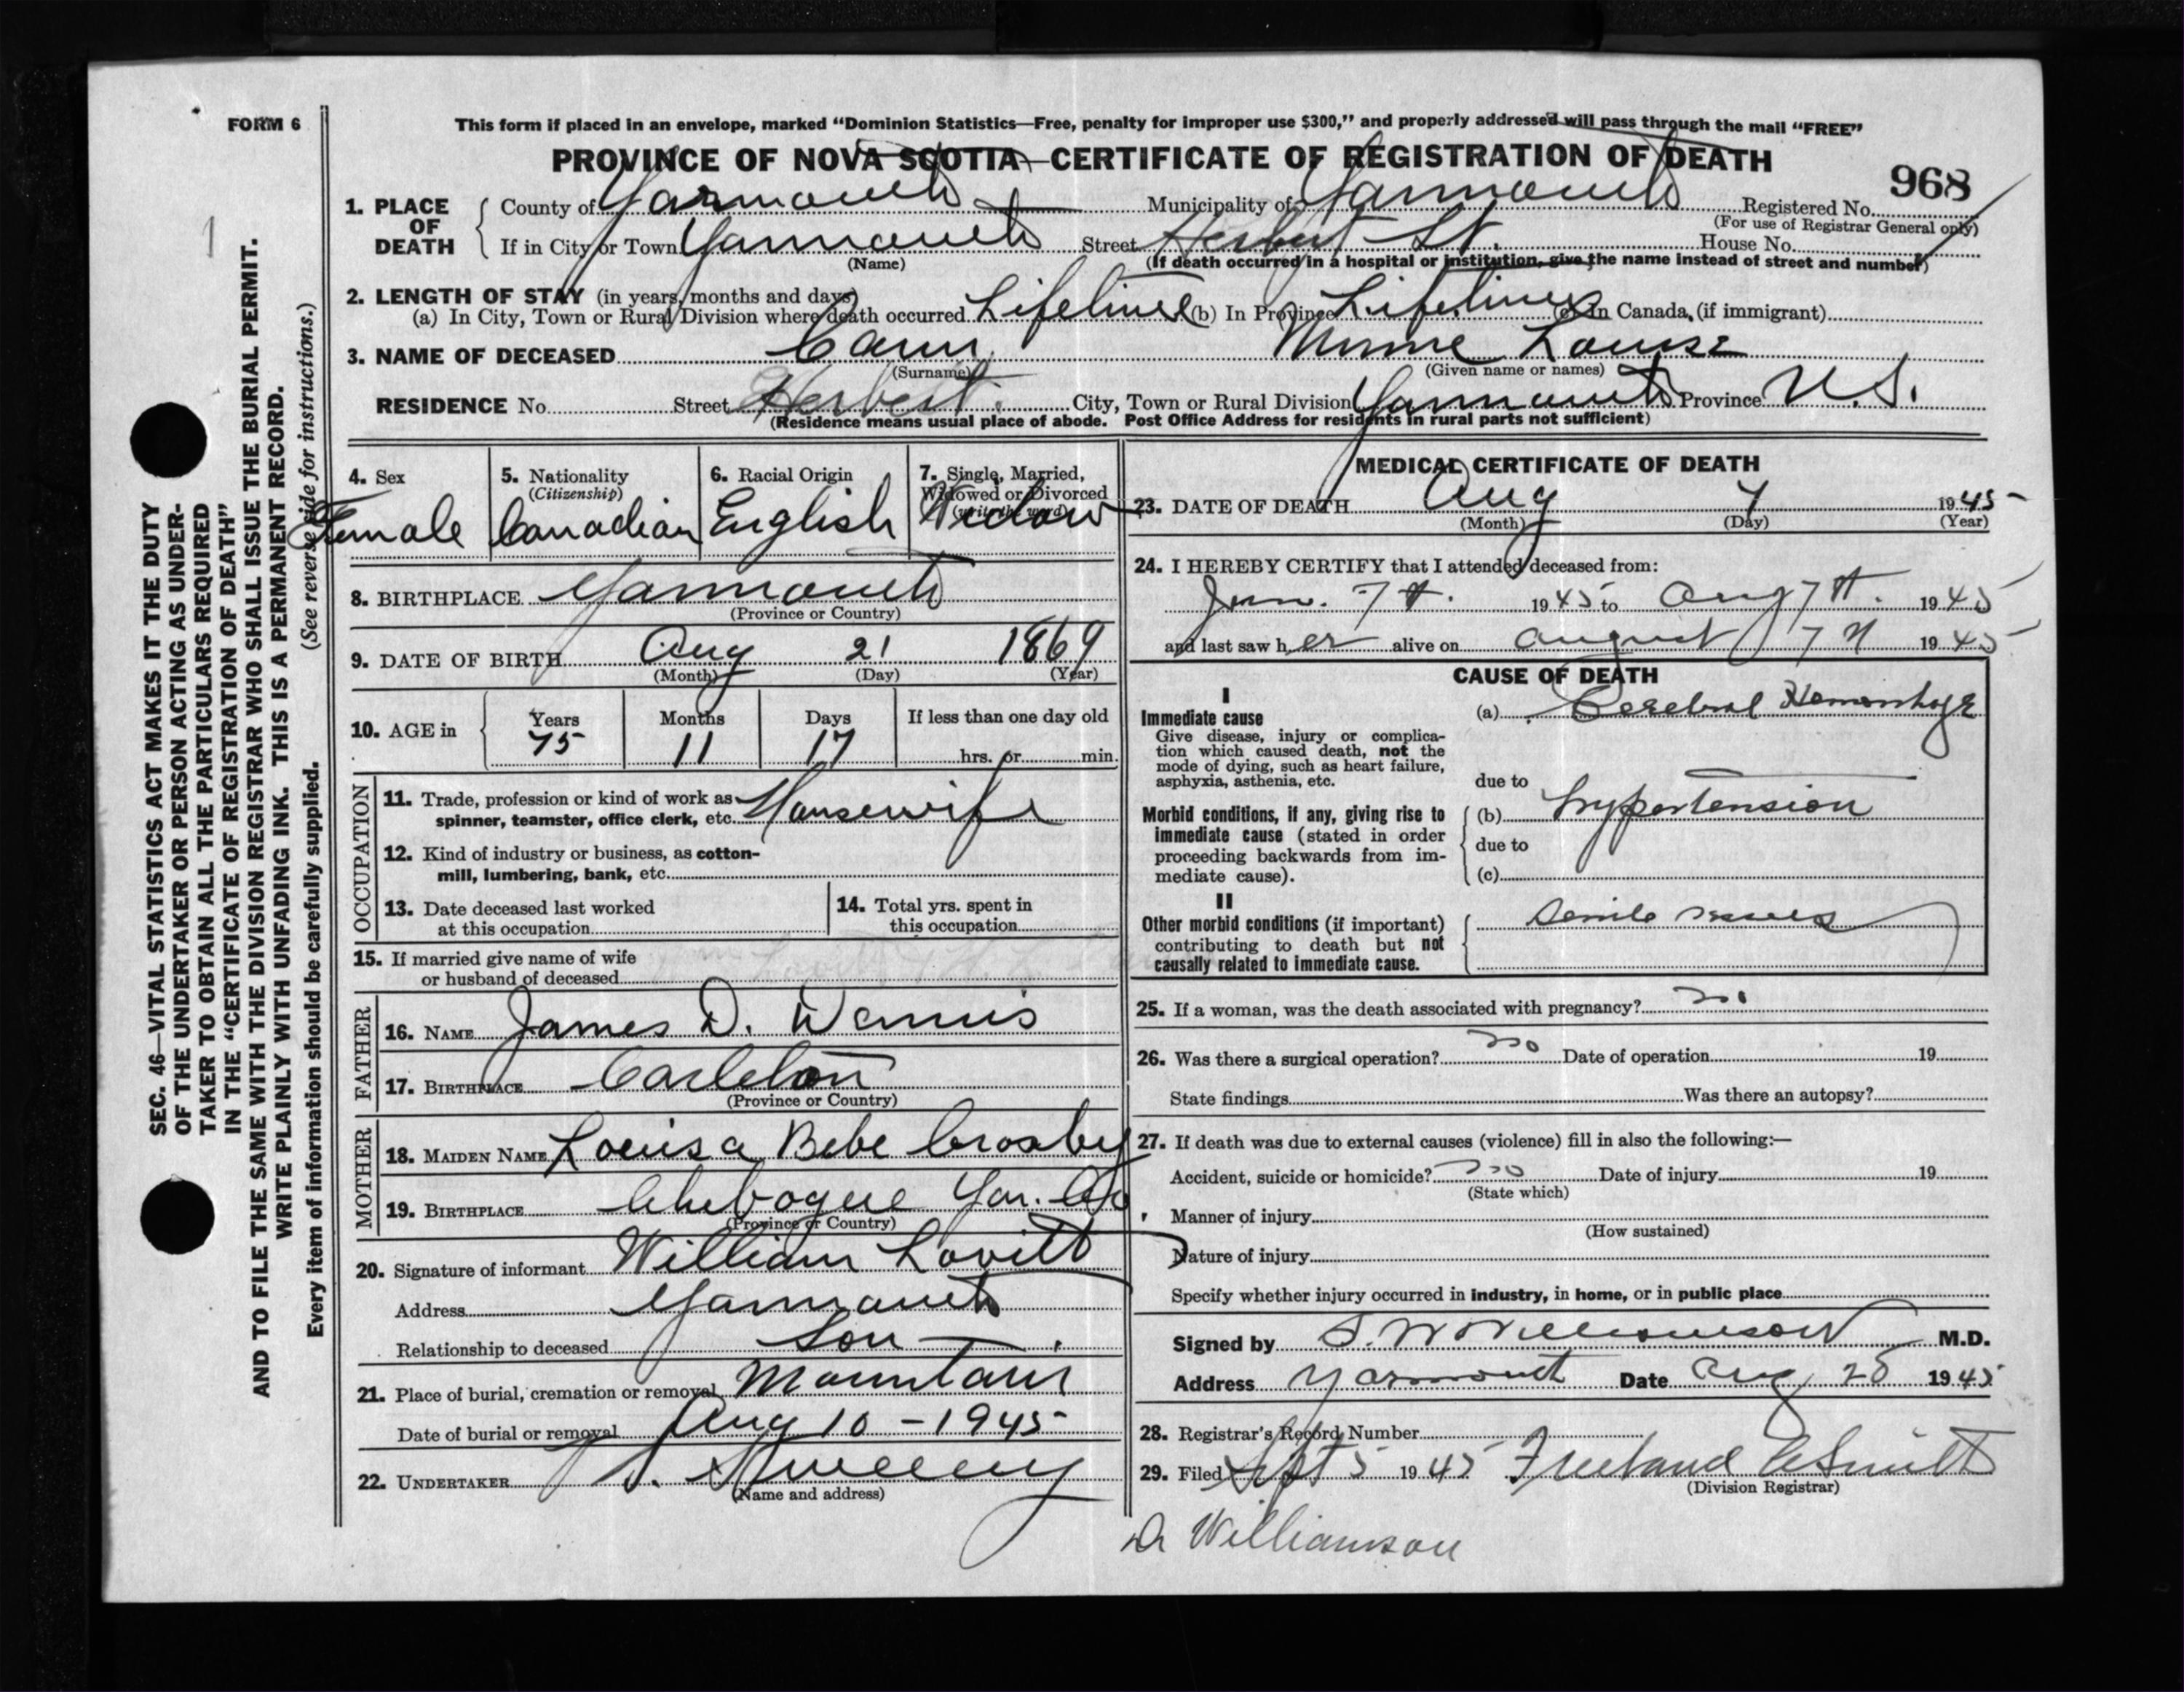 FORM 6
This form if placed in an envelope, marked "Dominion Statistics—Free, penalty for improper use $300," and properly addressed will pass through the mail "FREE"
PROVINCE OF NOVA SCOTIA—CERTIFICATE OF REGISTRATION OF DEATH
968
1. PLACE OF DEATH County of Yarmouth Municipality of Yarmouth Registered No.
(For use of Registrar General only)
If in City or Town Yarmouth Street Herbert St. House No.
(Name) (If death occurred in a hospital or institution, give the name instead of street and number)
2. LENGTH OF STAY (in years, months and days)
(a) In City, Town or Rural Division where death occurred Lifetime (b) In Province Lifetime (c) In Canada, (if immigrant)
3. NAME OF DECEASED Cann Minnie Louise
(Surname) (Given name or names)
RESIDENCE No. Street Herbert. City, Town or Rural Division Yarmouth Province N.S.
(Residence means usual place of abode. Post Office Address for residents in rural parts not sufficient)
4. Sex 5. Nationality 6. Racial Origin 7. Single, Married,
(Citizenship) Widowed or Divorced
(write the word)
Female Canadian English Widow
8. BIRTHPLACE Yarmouth
(Province or Country)
9. DATE OF BIRTH Aug 21 1869
(Month) (Day) (Year)
10. AGE in Years Months Days If less than one day old
75 11 17 hrs. or min.
OCCUPATION
11. Trade, profession or kind of work as Housewife
spinner, teamster, office clerk, etc.
12. Kind of industry or business, as cotton-
mill, lumbering, bank, etc.
13. Date deceased last worked 14. Total yrs. spent in
at this occupation this occupation
15. If married give name of wife
or husband of deceased
FATHER
16. NAME James D. Wemis
17. BIRTHPLACE Carleton
(Province or Country)
MOTHER
18. MAIDEN NAME Louisa Bebe Crosby
19. BIRTHPLACE Chebogue Yar. Co.
(Province or Country)
20. Signature of informant William Lovitt
Address Yarmouth
Relationship to deceased Son
21. Place of burial, cremation or removal Mountain
Date of burial or removal Aug 10 - 1945
22. UNDERTAKER Sweeny
(Name and address)
MEDICAL CERTIFICATE OF DEATH
23. DATE OF DEATH Aug 7 1945
(Month) (Day) (Year)
24. I HEREBY CERTIFY that I attended deceased from:
Jan. 7th. 1945 to Aug 7th. 1945
and last saw her alive on august 7th 1945
CAUSE OF DEATH
I
Immediate cause (a) Cerebral Hemorrhage
Give disease, injury or complica-
tion which caused death, not the
mode of dying, such as heart failure,
asphyxia, asthenia, etc. due to
Morbid conditions, if any, giving rise to (b) hypertension
immediate cause (stated in order due to
proceeding backwards from im-
mediate cause). (c)
II
Other morbid conditions (if important) Senile
contributing to death but not
causally related to immediate cause.
25. If a woman, was the death associated with pregnancy? no
26. Was there a surgical operation? no Date of operation 19
State findings Was there an autopsy?
27. If death was due to external causes (violence) fill in also the following:—
Accident, suicide or homicide? no Date of injury 19
(State which)
Manner of injury
(How sustained)
Nature of injury
Specify whether injury occurred in industry, in home, or in public place
Signed by S. W Williamson M.D.
Address Yarmouth Date Aug 28 1945
28. Registrar's Record Number
29. Filed Sept 5 1945 Freeland Smith
(Division Registrar)
Dr Williamson
SEC. 46—VITAL STATISTICS ACT MAKES IT THE DUTY
OF THE UNDERTAKER OR PERSON ACTING AS UNDER-
TAKER TO OBTAIN ALL THE PARTICULARS REQUIRED
IN THE "CERTIFICATE OF REGISTRATION OF DEATH"
AND TO FILE THE SAME WITH THE DIVISION REGISTRAR WHO SHALL ISSUE THE BURIAL PERMIT.
WRITE PLAINLY WITH UNFADING INK. THIS IS A PERMANENT RECORD.
Every item of information should be carefully supplied. (See reverse side for instructions.)